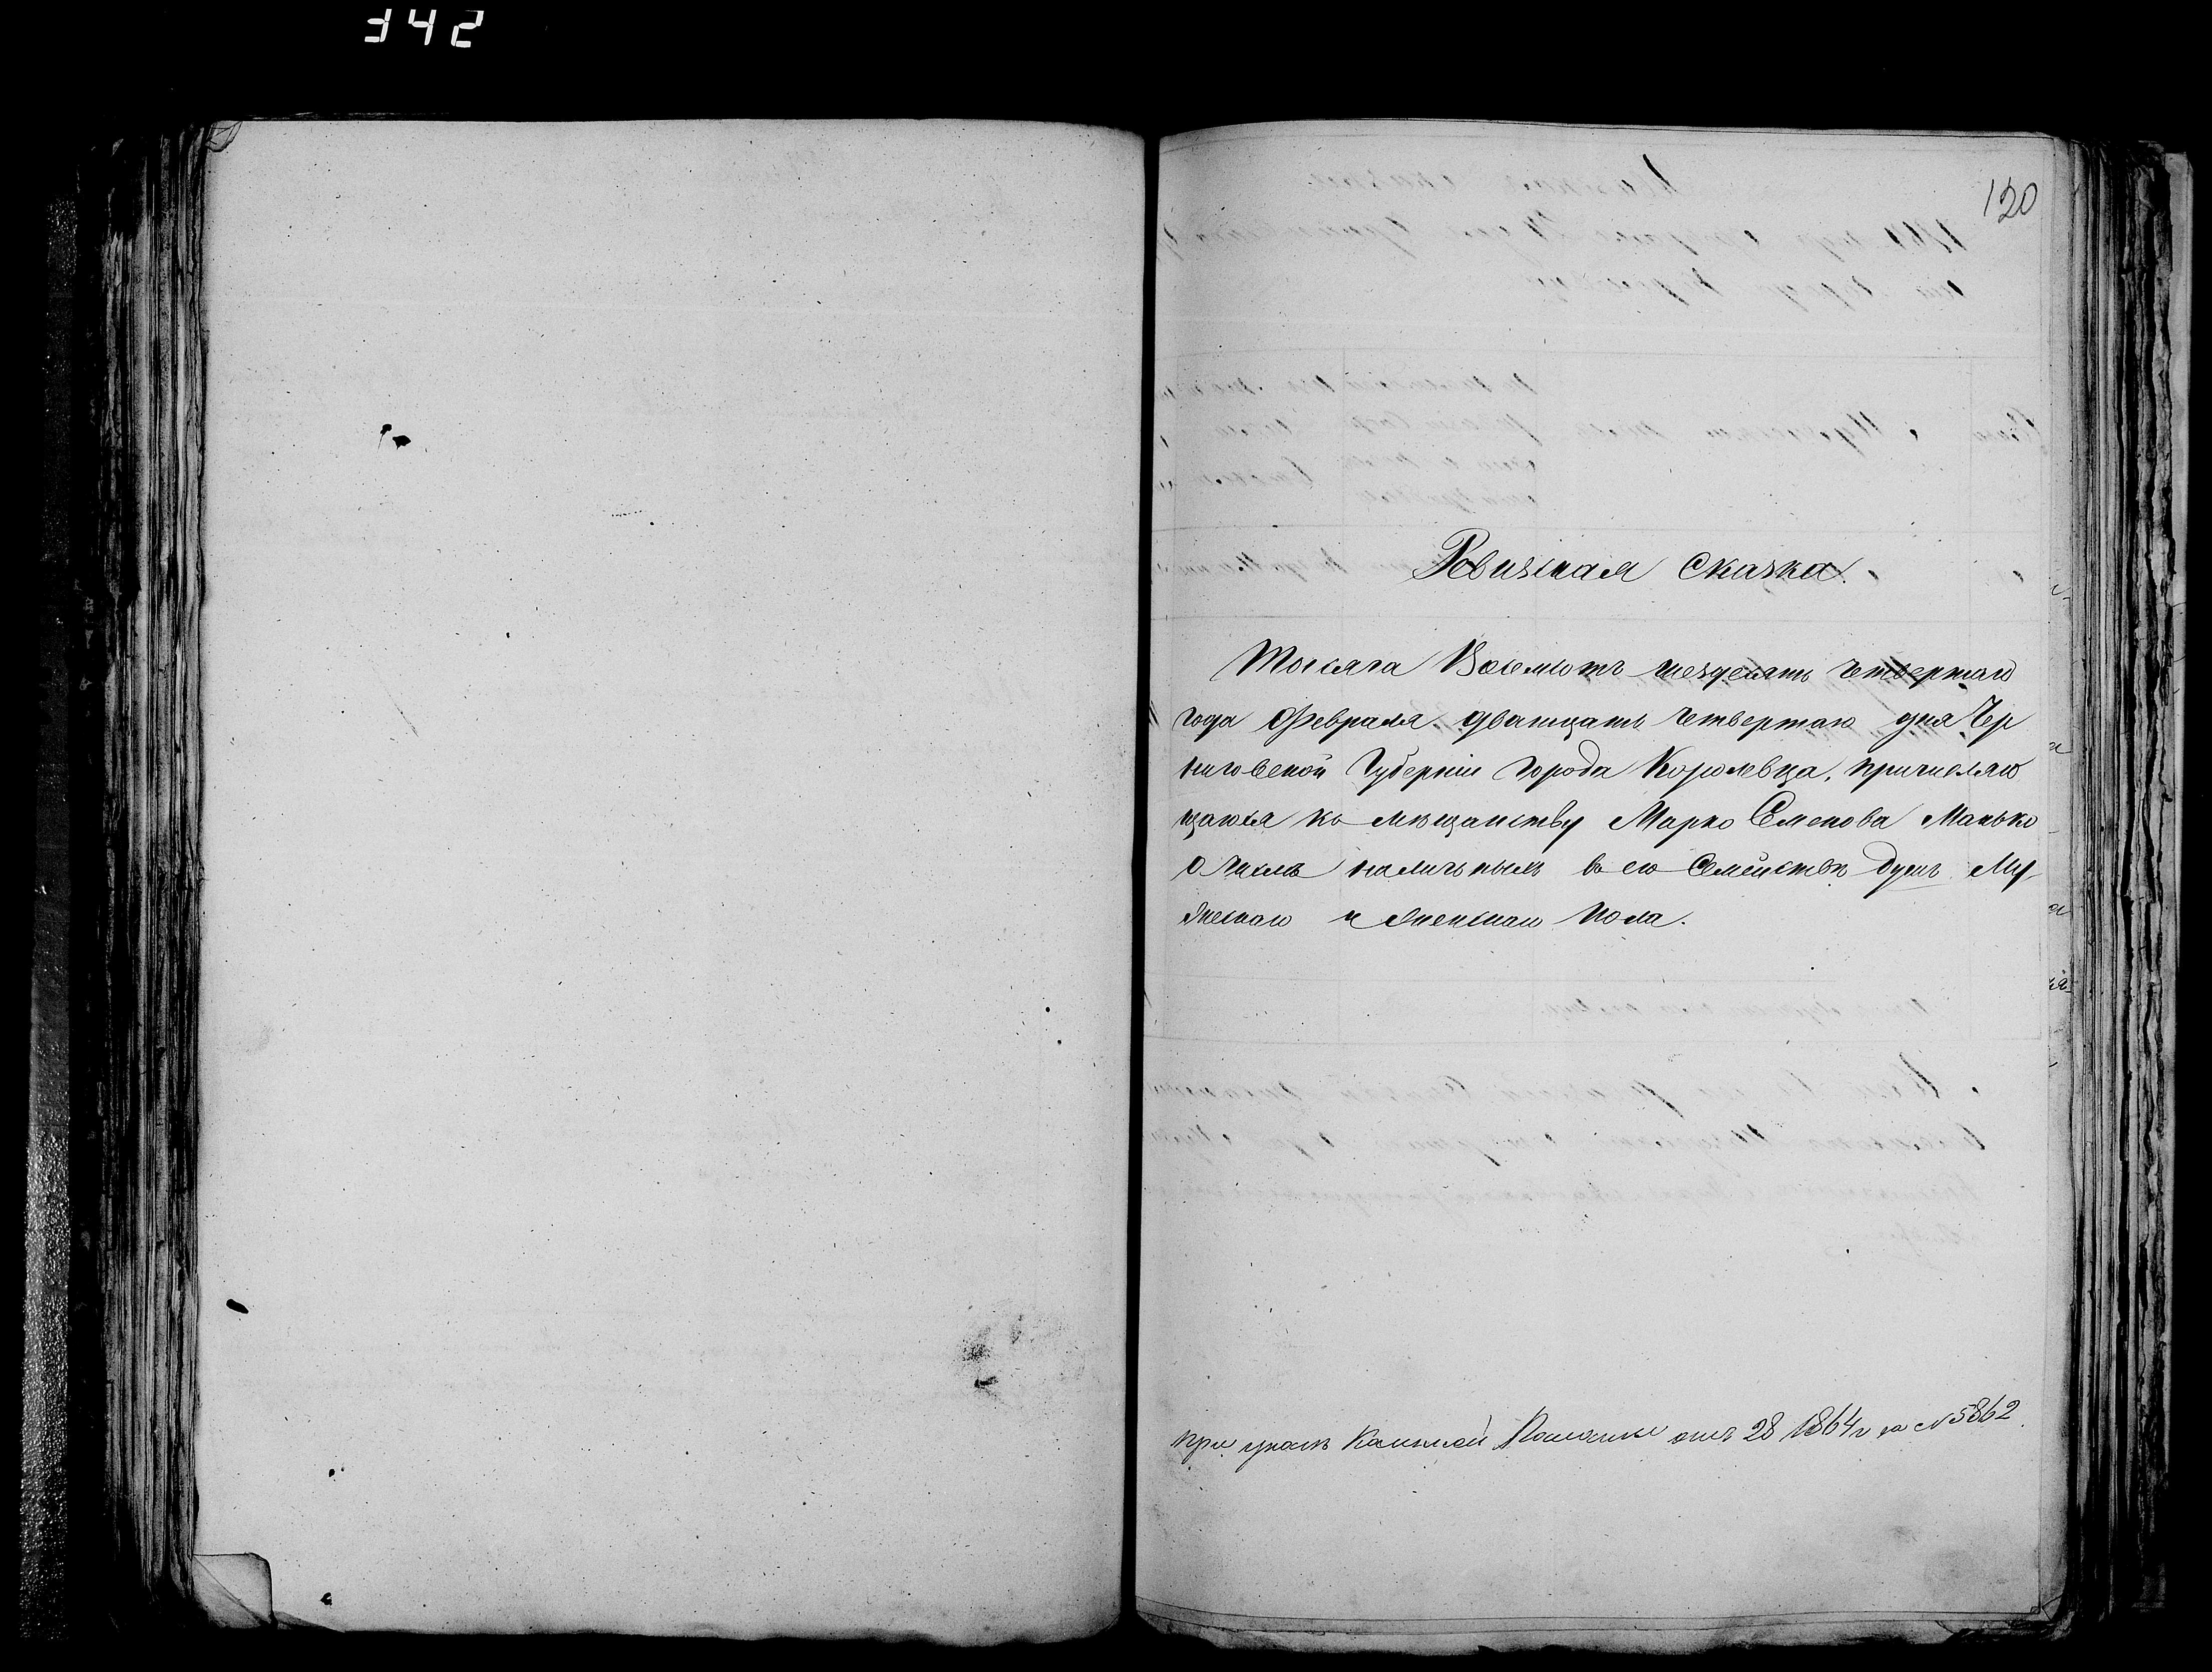 342
120
Ревизская сказка.
Тысяча Восемьсотъ шездесятъ четвертаго
года Февраля двատцать четвертаго дня Чер
ниговской Губерніи города Королевца, причисляю
щагося къ мѣщанству Марко Семенова Манько
о числѣ наличныхъ въ его Семействѣ душъ Му
жескаго и Женскаго пола.
при указѣ Казенной Палаты отъ 28 1864 г за № 5862